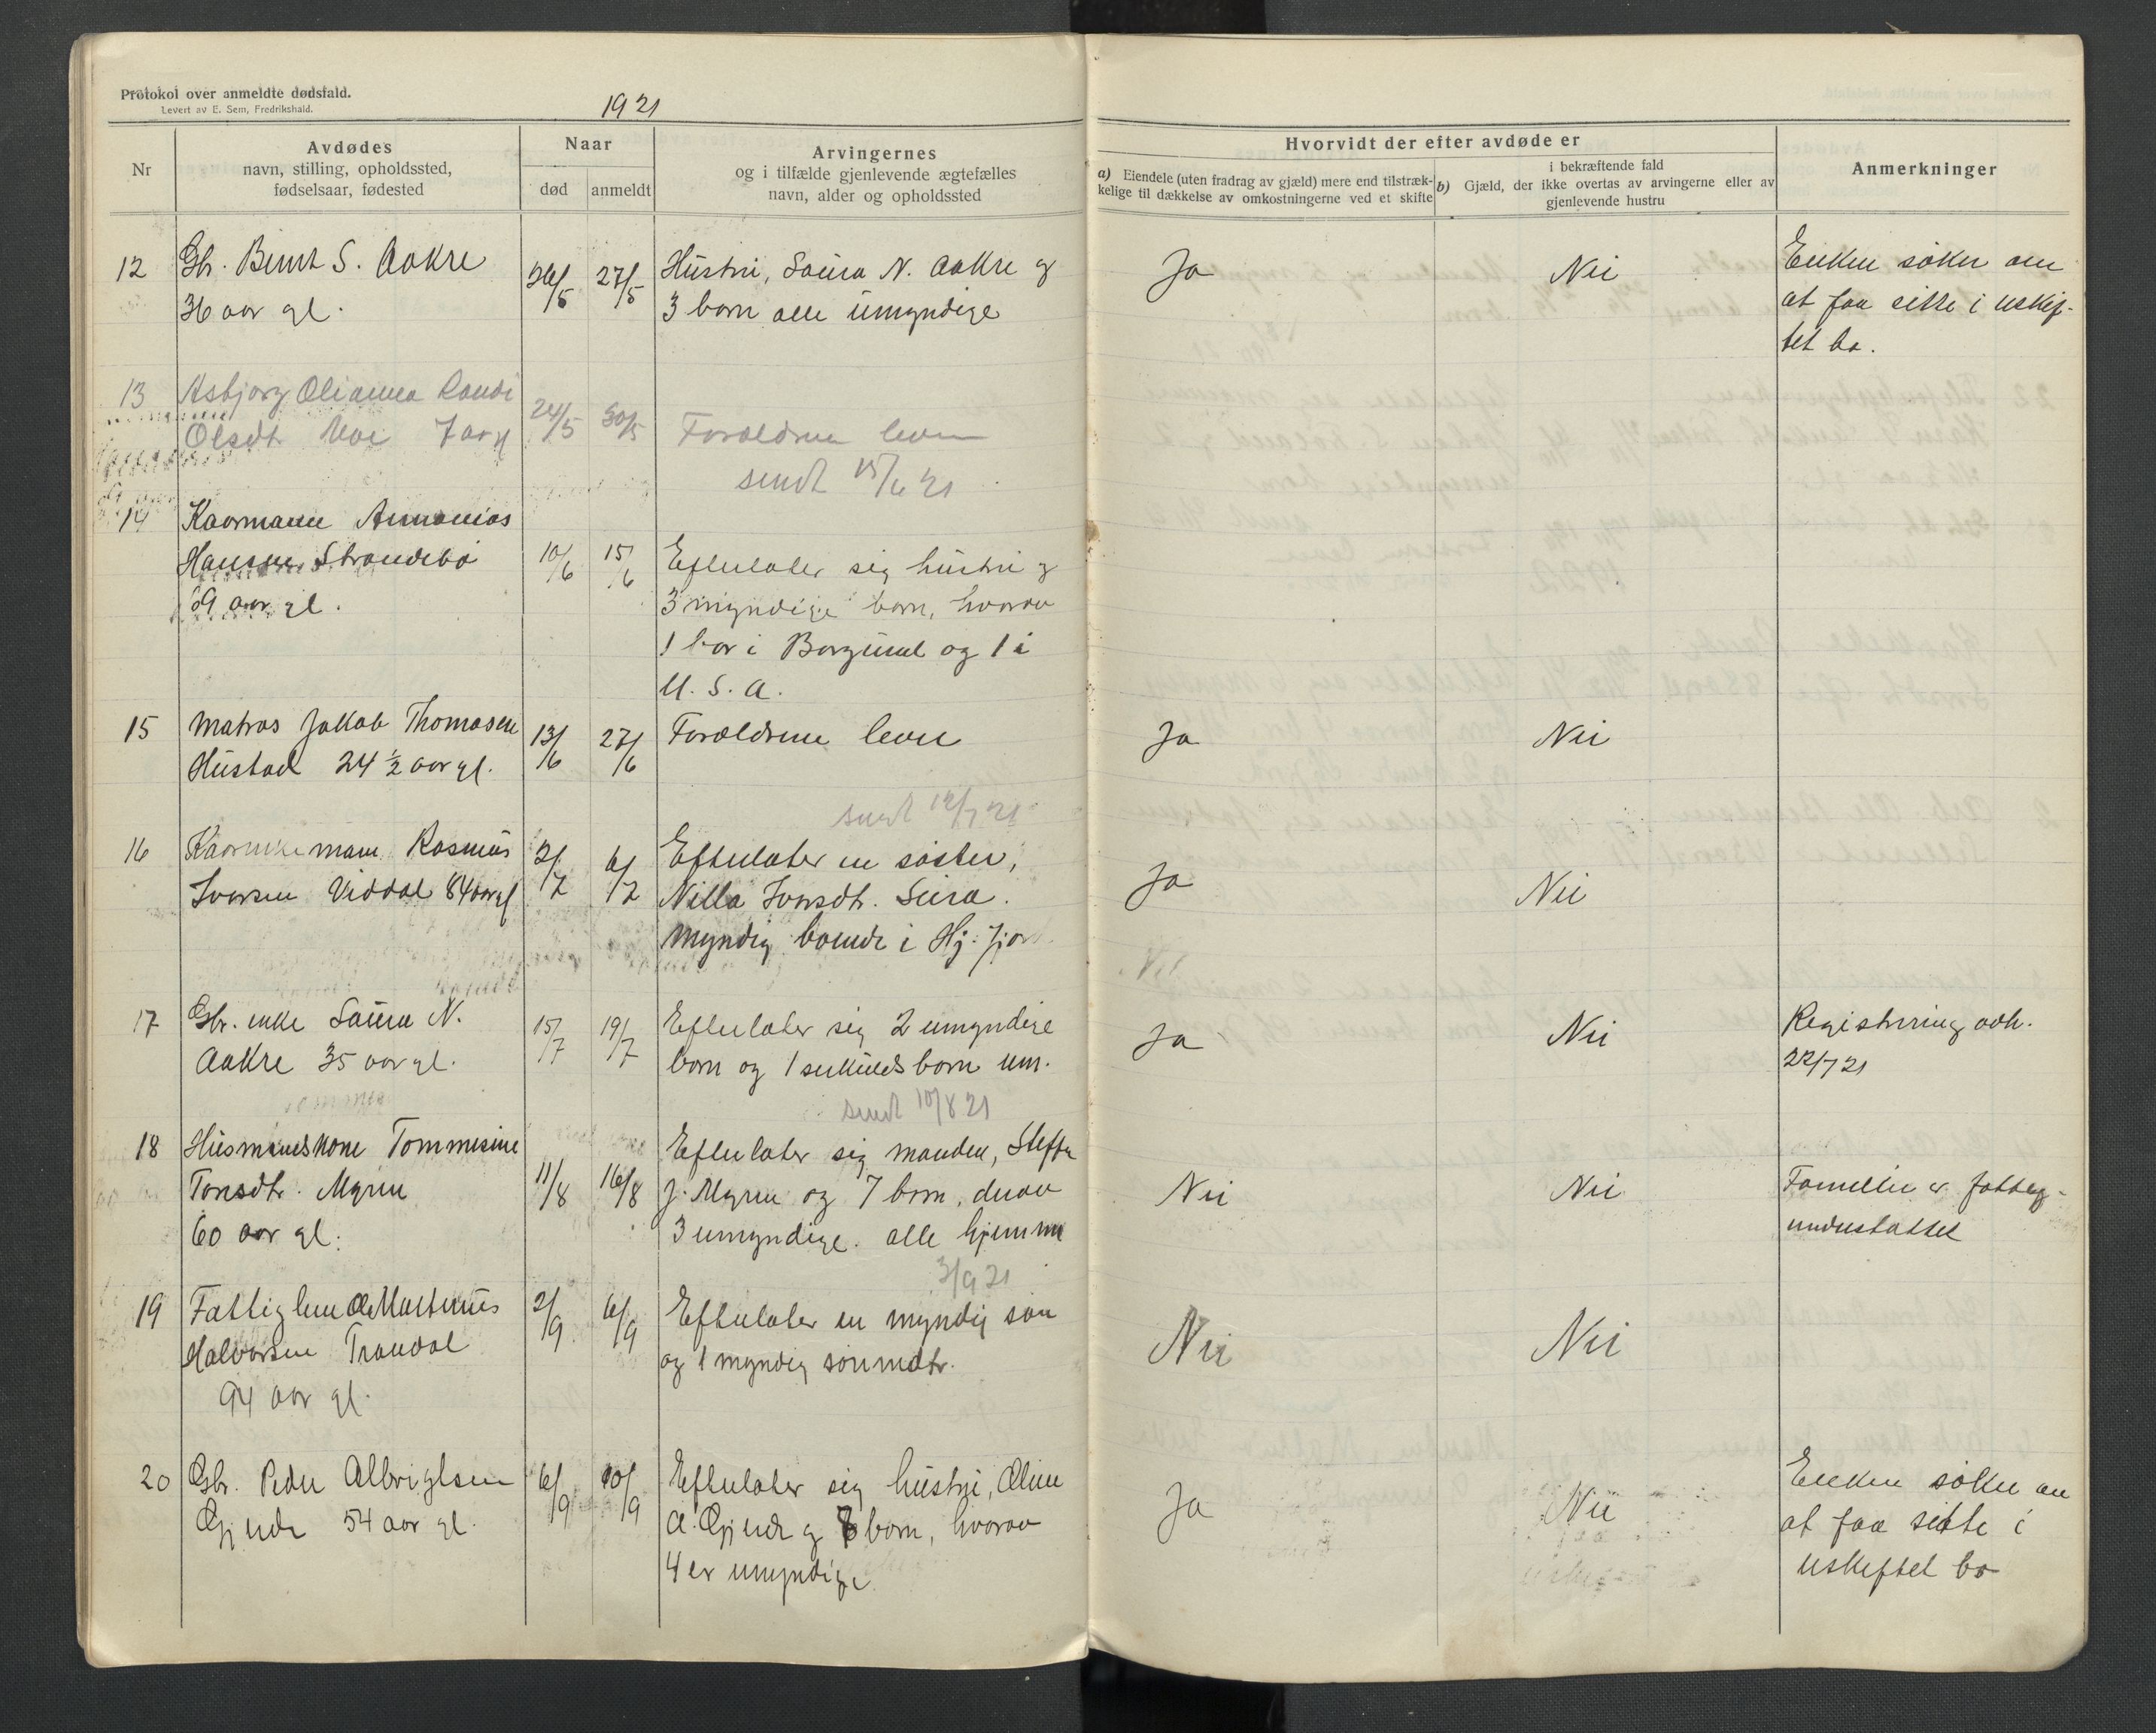 Protokol over anmeldte dødsfald.
Levert av E. Sem, Fredrikshald.
1921
Nr
Avdødes
navn, stilling, opholdssted,
fødselsaar, fødested
Naar
død
anmeldt
Arvingernes
og i tilfælde gjenlevende ægtefælles
navn, alder og opholdssted
Hvorvidt der efter avdøde er
a) Eiendele (uten fradrag av gjæld) mere end tilstræk-
kelige til dækkelse av omkostningerne ved et skifte
i bekræftende fald
b) Gjæld, der ikke overtas av arvingerne eller av
gjenlevende hustru
Anmerkninger
12
Gbr. Bernt S. Aakre
36 aar gl.
26/5
27/5
Hustru, Laura N. Aakre og
3 born alle umyndige
Ja
Nei
Enken søker om
at faa sitte i uskif-
tet bo.
13
Asbjørg Olianna Randi
Olsdtr. Moe 7 aar gl
24/5
30/5
Forældrene lever
sendt 15/6 21
14
Kaarmann Ananias
Hansen Strandebø
59 aar gl.
10/6
15/6
Efterlater sig hustru og
3 myndige born, hvorav
1 bor i Borgund og 1 i
U. S. A.
15
Matros Jakob Thomasen
Hustad 24 1/2 aar gl.
13/6
27/6
Forældrene lever
Ja
Nei
sendt 12/7 21
16
Rasmus
Ivarsen Viddal 84 aar gl
2/7
6/7
Efterlater en søster,
Nilla Ivarsdtr.
Myndig boende i Hj. fjord
Ja
Nei
17
Gbr. enke Laura N.
Aakre 35 aar gl.
15/7
19/7
Efterlater sig 2 umyndige
born og 1 særkuldsborn um.
Ja
Nei
Registrering avh.
22/7 21
sendt 10/8 21
18
Husmandskone Tommesine
Tonsdtr. Myren
60 aar gl.
11/8
16/8
Efterlater sig manden, Steffen
J. Myren og 7 born, derav
3 umyndige. alle hjemme
Nei
Nei
Familien er fattig-
understøttet
3/9 21
19
Fattiglem Ole Martinus
Halvorsen Trandal
94 aar gl.
2/9
6/9
Efterlater en myndig søn
og 1 myndig sønnedtr.
Nei
Nei
20
Gbr. Peder Albrigtsen
Gjerde 54 aar gl.
6/9
10/9
Efterlater sig hustru, Oline
A. Gjerde og 7 born, hvorav
4 er umyndige
Ja
Nei
Enken søker om
at faa sitte i
uskiftet bo